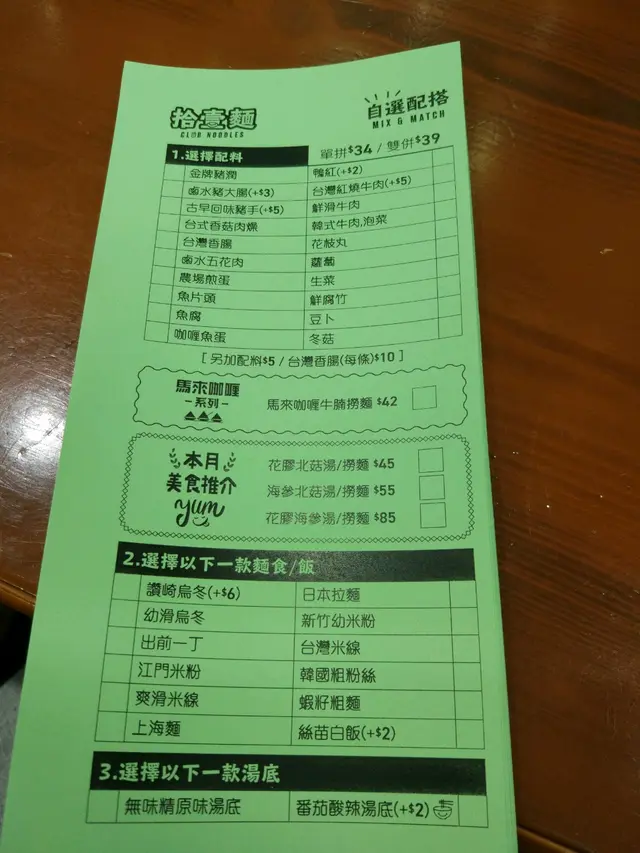 拾壹麵
CLUB NOODLES
自選配搭
MIX & MATCH
1.選擇配料 單拼$34 / 雙併$39
金牌豬潤 鴨紅(+$2)
鹵水豬大腸(+$3) 台灣紅燒牛肉(+$5)
古早回味豬手(+$5) 鮮滑牛肉
台式香菇肉燥 韓式牛肉,泡菜
台灣香腸 花枝丸
鹵水五花肉 蘿蔔
農場煎蛋 生菜
魚片頭 鮮腐竹
魚腐 豆卜
咖喱魚蛋 冬菇
[ 另加配料$5 / 台灣香腸(每條)$10 ]
馬來咖喱
系列
馬來咖喱牛腩撈麵 $42
本月
美食推介
yum
花膠北菇湯/撈麵 $45
海參北菇湯/撈麵 $55
花膠海參湯/撈麵 $85
2.選擇以下一款麵食/飯
讚崎烏冬(+$6) 日本拉麵
幼滑烏冬 新竹幼米粉
出前一丁 台灣米線
江門米粉 韓國粗粉絲
爽滑米線 蝦籽粗麵
上海麵 絲苗白飯(+$2)
3.選擇以下一款湯底
無味精原味湯底 番茄酸辣湯底(+$2)